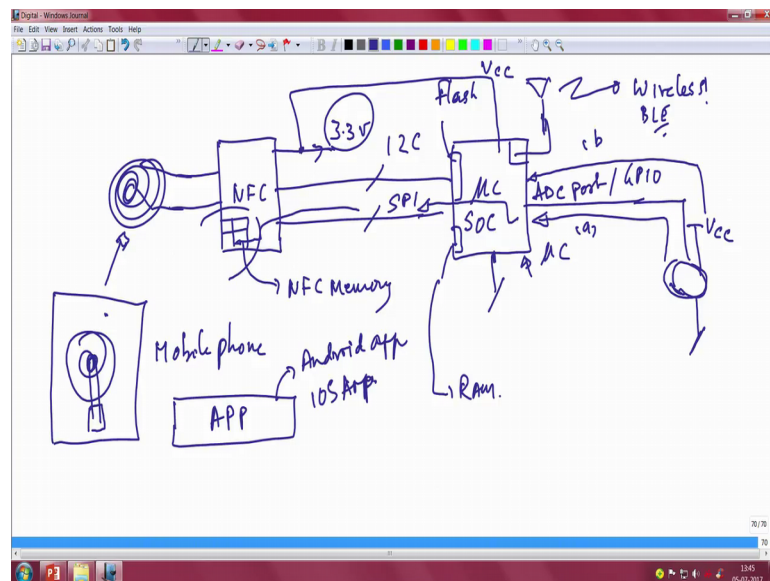 Digital - Windows Journal
File Edit View Insert Actions Tools Help
Vcc
Flash
Wireless!
BLE
3.3V
I2C
(b
NFC
MC
ADC port / GPIO
SPI
SOC
(a)
Vcc
MC
NFC Memory
Mobile phone
Android app
IOS App
RAM.
APP
70/70
70
13:45
05-07-2017